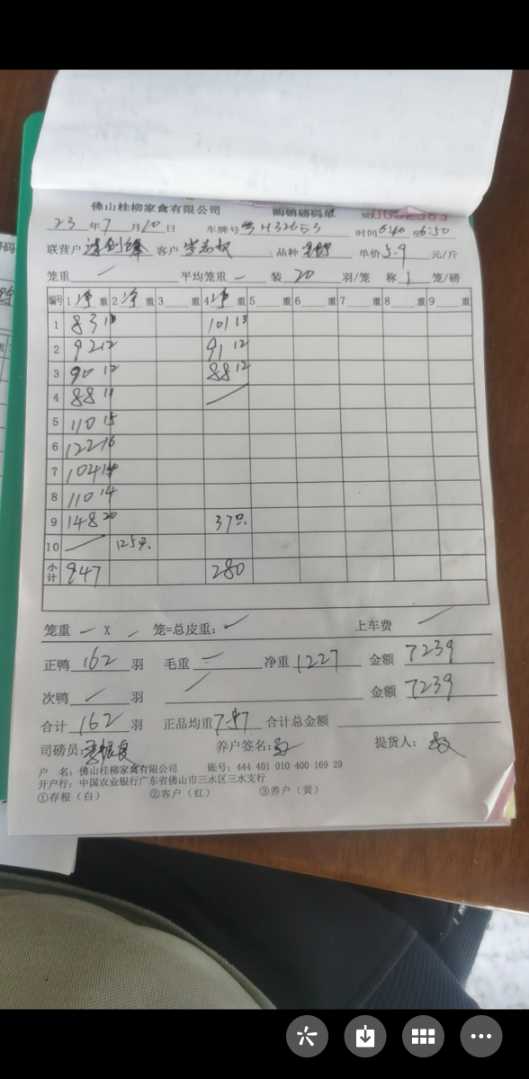 佛山桂柳家禽有限公司 购销磅码单
23 年 7 月 10 日 车牌号 时间 6:40 6:50
联营户 客户 品种 单价 5.9 元/斤
笼重 — 平均笼重 — 装 20 羽/笼 称 1 笼/磅
编号 1 净 重 2 净 重 3 重 4 净 重 5 重 6 重 7 重 8 重 9 重
1 83 10 101 13
2 92 12 91 12
3 90 12 88 12
4 88 11
5 110 15
6 122 16
7 104 14
8 110 14
9 148 20 37只.
10 125只.
小计 947 280
笼重 — x 笼=总皮重: 上车费
正鸭 162 羽 毛重 — 净重 1227 金额 7239
次鸭 羽 金额 7239
合计 162 羽 正品均重 7.57 合计总金额
司磅员: 养户签名: 提货人:
户 名: 佛山桂柳家禽有限公司 账号: 444 401 010 400 169 29
开户行: 中国农业银行广东省佛山市三水区三水支行
①存根(白) ②客户(红) ③养户(黄)